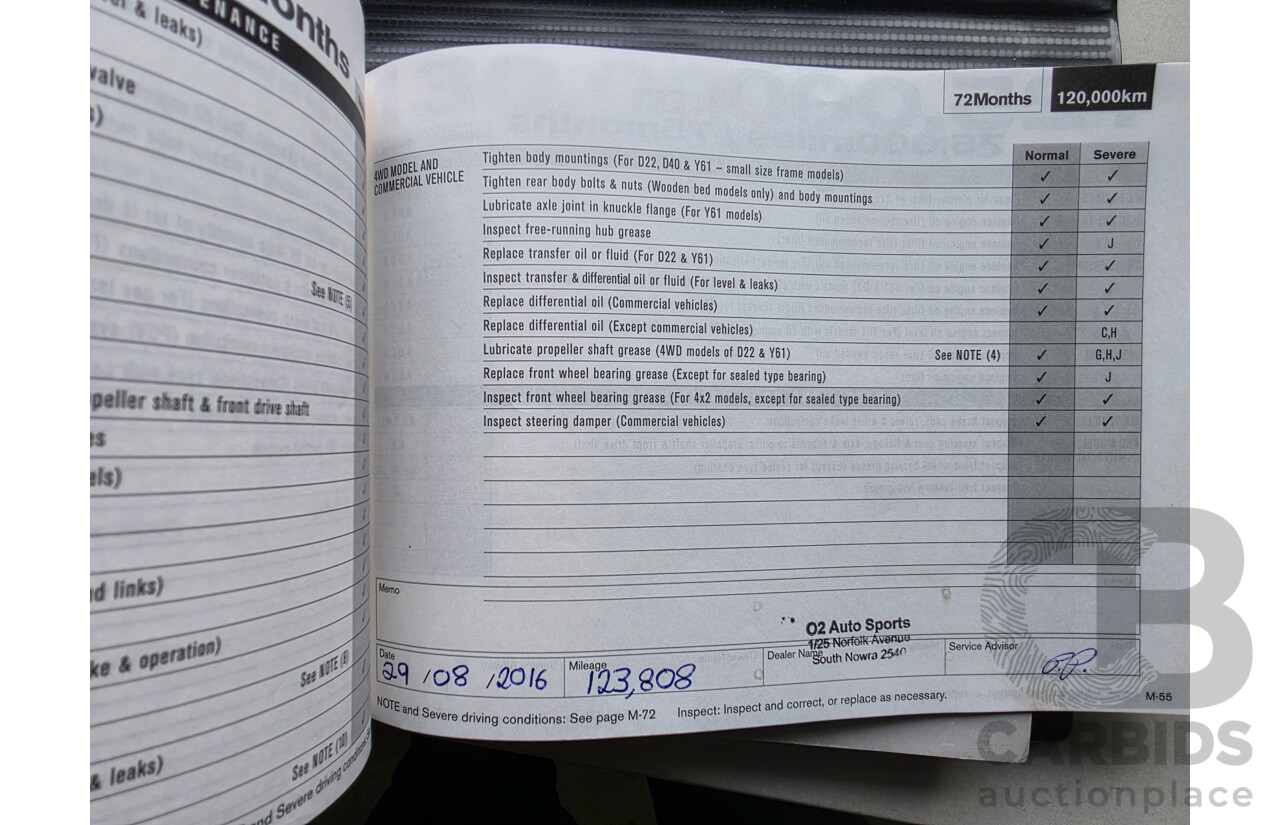 onths
ENANCE
& leaks)
valve
s)
See NOTE (5)
peller shaft & front drive shaft
es
els)
nd links)
ke & operation)
See NOTE (8)
See NOTE (10)
& leaks)
and Severe driving conditions:
72Months 120,000km
Normal Severe
4WD MODEL AND
COMMERCIAL VEHICLE
Tighten body mountings (For D22, D40 & Y61 – small size frame models) ✓ ✓
Tighten rear body bolts & nuts (Wooden bed models only) and body mountings ✓ ✓
Lubricate axle joint in knuckle flange (For Y61 models) ✓ ✓
Inspect free-running hub grease ✓ J
Replace transfer oil or fluid (For D22 & Y61) ✓ ✓
Inspect transfer & differential oil or fluid (For level & leaks) ✓ ✓
Replace differential oil (Commercial vehicles) ✓ ✓
Replace differential oil (Except commercial vehicles) C,H
Lubricate propeller shaft grease (4WD models of D22 & Y61) See NOTE (4) ✓ G,H,J
Replace front wheel bearing grease (Except for sealed type bearing) ✓ J
Inspect front wheel bearing grease (For 4x2 models, except for sealed type bearing) ✓ ✓
Inspect steering damper (Commercial vehicles) ✓ ✓
Memo
O2 Auto Sports
1/25 Norfolk Avenue
South Nowra 2540
Date
29 / 08 / 2016
Mileage
123,808
Dealer Name
Service Advisor
NOTE and Severe driving conditions: See page M-72 Inspect: Inspect and correct, or replace as necessary.
M-55
CARBIDS
auctionplace